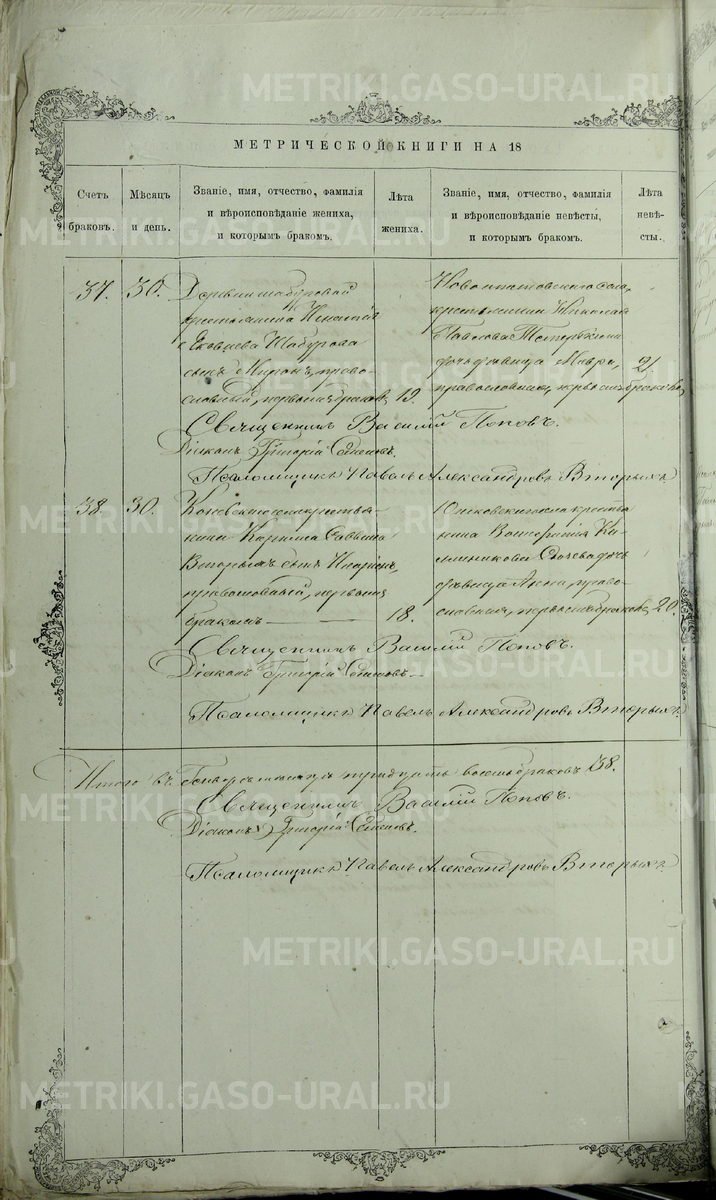 МЕТРИЧЕСКОЙ КНИГИ НА 18
Счетъ
браковъ.
Мѣсяцъ
и день.
Званіе, имя, отчество, фамилія
и вѣроисповѣданіе жениха,
и которымъ бракомъ.
Лѣта
жениха.
Званіе, имя, отчество, фамилія
и вѣроисповѣданіе невѣсты,
и которымъ бракомъ.
Лѣта
невѣ-
сты.
37.
30.
Деревни Шабуровой
крестьянина
Яковлева Шабурова
сынъ Миронъ, право-
славный, первымъ бракомъ
19.
крестьянина Николая
Павлова
дочь дѣвица Мавра,
православная, первымъ бракомъ
21
Священникъ Василій Поповъ.
Діаконъ Григорій
Псаломщикъ Павелъ Александровъ Вторыхъ
38.
30.
Коневскаго села крестья-
нина Савина
Вторыхъ сынъ Иларіонъ,
православный, первымъ
бракомъ
18.
села крестья-
нина
дочь
дѣвица Анна, право-
славная, первымъ бракомъ
20
Священникъ Василій Поповъ.
Діаконъ Григорій
Псаломщикъ Павелъ Александровъ Вторыхъ
Итого въ Генварѣ мѣсяцѣ тридцать восемь браковъ 38.
Священникъ Василій Поповъ.
Діаконъ Григорій
Псаломщикъ Павелъ Александровъ Вторыхъ
METRIKI.GASO-URAL.RU